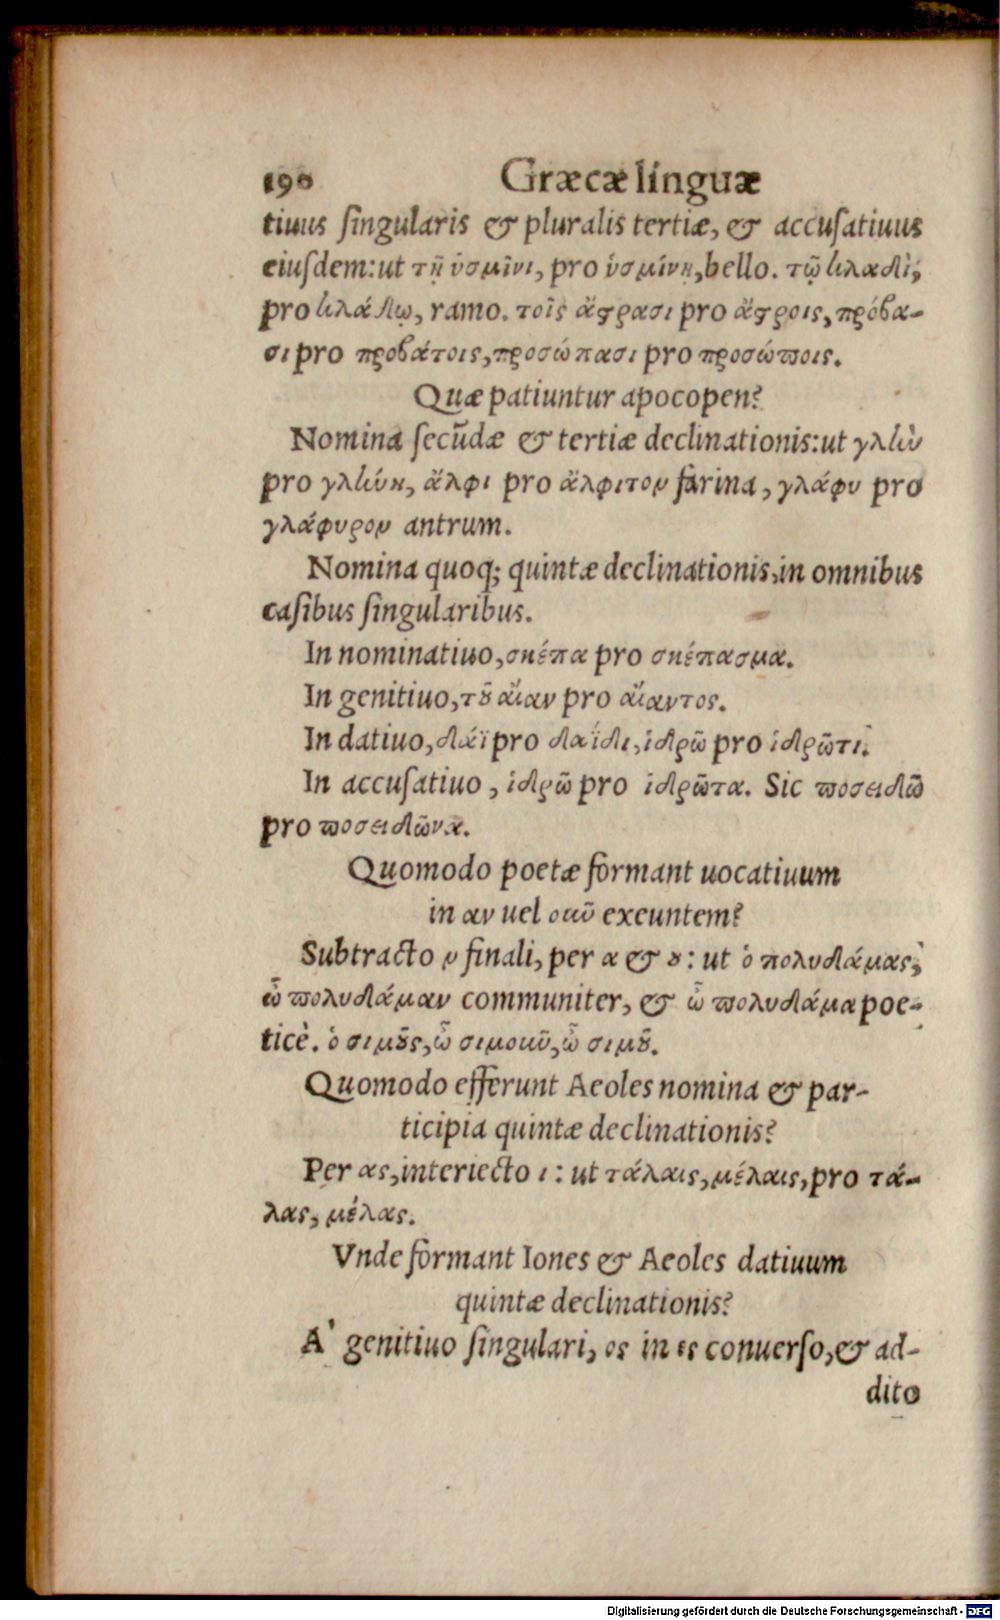 190 Græcæ linguæ
tiuus ſingularis & pluralis tertiæ, & accuſatiuus
eiuſdem: ut τῇ ὑσμῖνι, pro ὑσμίνῃ, bello. τῷ κλαδὶ,
pro κλάδῳ, ramo. τοῖς ἄστρασι pro ἄστροις, πρόβα-
σι pro προβάτοις, προσώπασι pro προσώποις.
Quæ patiuntur apocopen?
Nomina ſecũdæ & tertiæ declinationis: ut γλὴν
pro γλήνη, ἄλφι pro ἄλφιτον farina, γλάφυ pro
γλάφυρον antrum.
Nomina quoq; quintæ declinationis, in omnibus
caſibus ſingularibus.
In nominatiuo, σκέπα pro σκέπασμα.
In genitiuo, τοῦ αἴαν pro αἴαντος.
In datiuo, δάϊ pro δαΐδι, ἱδρῶ pro ἱδρῶτι.
In accuſatiuo, ἱδρῶ pro ἱδρῶτα. Sic ποσειδῶ
pro ποσειδῶνα.
Quomodo poetæ formant uocatiuum
in αν uel οῦν exeuntem?
Subtracto ν finali, per α & ου: ut ὁ πολυδάμας,
ὦ πολυδάμαν communiter, & ὦ πολυδάμα poe-
ticè. ὁ σιμοῦς, ὦ σιμοῦν, ὦ σιμοῦ.
Quomodo efferunt Aeoles nomina & par-
ticipia quintæ declinationis?
Per ας, interiecto ι: ut τάλαις, μέλαις, pro τά-
λας, μέλας.
Vnde formant Iones & Aeoles datiuum
quintæ declinationis?
A' genitiuo ſingulari, ος in ες conuerſo, & ad-
dito
Digitalisierung gefördert durch die Deutsche Forschungsgemeinschaft - DFG